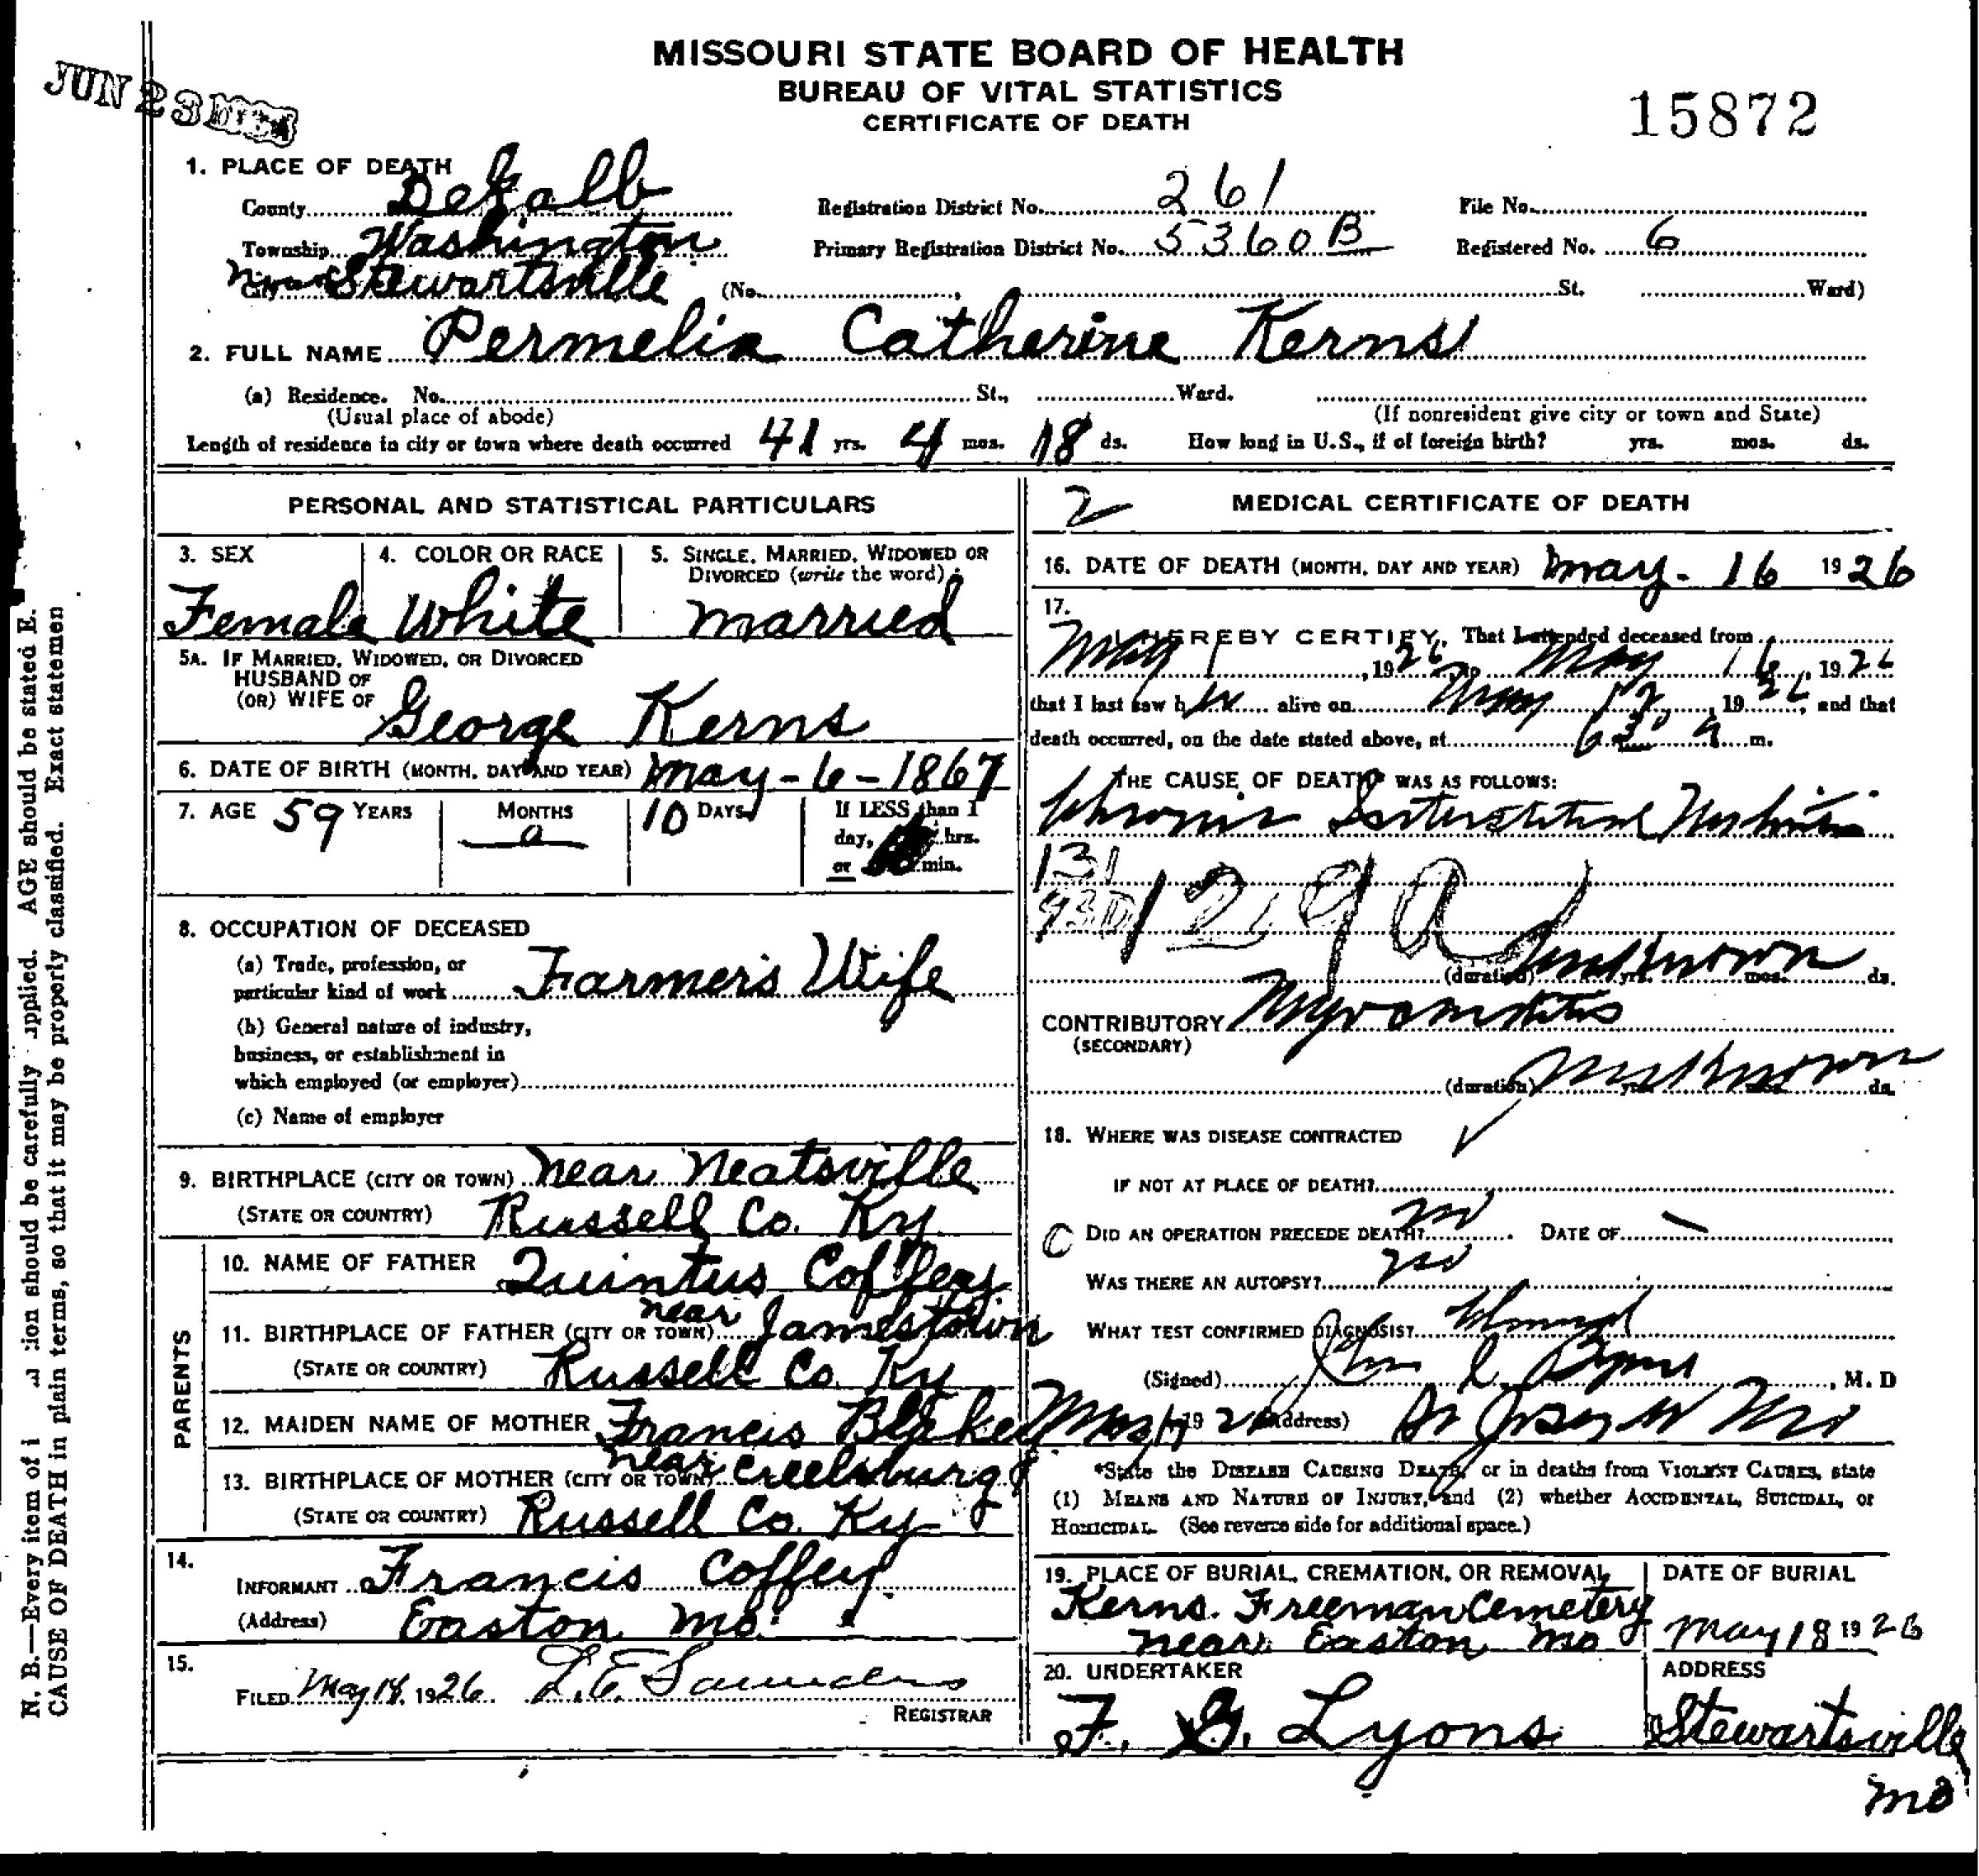 MISSOURI STATE BOARD OF HEALTH
BUREAU OF VITAL STATISTICS
CERTIFICATE OF DEATH
JUN 23
15872
1. PLACE OF DEATH
County Dekalb Registration District No. 261 File No.
Township Washington Primary Registration District No. 5360B Registered No. 6
City near Stewartsville (No. , St. Ward)
2. FULL NAME Permelia Catherine Kerns
(a) Residence. No. St., Ward.
(Usual place of abode) (If nonresident give city or town and State)
Length of residence in city or town where death occurred 41 yrs. 4 mos. 18 ds. How long in U.S., if of foreign birth? yrs. mos. ds.
PERSONAL AND STATISTICAL PARTICULARS
3. SEX 4. COLOR OR RACE 5. SINGLE, MARRIED, WIDOWED OR
DIVORCED (write the word)
Female White married
5A. IF MARRIED, WIDOWED, OR DIVORCED
HUSBAND OF
(OR) WIFE OF George Kerns
6. DATE OF BIRTH (MONTH, DAY AND YEAR) May-6-1867
7. AGE 59 YEARS MONTHS 0 10 DAYS If LESS than 1
day, hrs.
or min.
8. OCCUPATION OF DECEASED
(a) Trade, profession, or
particular kind of work Farmer's Wife
(b) General nature of industry,
business, or establishment in
which employed (or employer)
(c) Name of employer
9. BIRTHPLACE (CITY OR TOWN) near Neatsville
(STATE OR COUNTRY) Russell Co. Ky
PARENTS
10. NAME OF FATHER Quintus Coffey
11. BIRTHPLACE OF FATHER (CITY OR TOWN) near Jamestown
(STATE OR COUNTRY) Russell Co. Ky
12. MAIDEN NAME OF MOTHER Francis Blakey
13. BIRTHPLACE OF MOTHER (CITY OR TOWN) near Creelsburg
(STATE OR COUNTRY) Russell Co. Ky
14.
INFORMANT Francis Coffey
(Address) Easton Mo.
15.
FILED May 18, 1926 L.E. Saunders
REGISTRAR
2 MEDICAL CERTIFICATE OF DEATH
16. DATE OF DEATH (MONTH, DAY AND YEAR) May-16 1926
17.
I HEREBY CERTIFY, That I attended deceased from
May 1, 1926 to May 16, 1926
that I last saw her alive on May 12, 1926, and that
death occurred, on the date stated above, at 6 30 a m.
THE CAUSE OF DEATH* WAS AS FOLLOWS:
Chronic Interstitial Nephritis
131
93D 129a
(duration) unknown yrs. mos. ds.
CONTRIBUTORY Myocarditis
(SECONDARY)
(duration) unknown yrs. mos. ds.
18. WHERE WAS DISEASE CONTRACTED
IF NOT AT PLACE OF DEATH?
DID AN OPERATION PRECEDE DEATH? no DATE OF
WAS THERE AN AUTOPSY? no
WHAT TEST CONFIRMED DIAGNOSIS?
(Signed) , M. D
May 1926 (Address) St Joseph Mo
*State the DISEASE CAUSING DEATH, or in deaths from VIOLENT CAUSES, state
(1) MEANS AND NATURE OF INJURY, and (2) whether ACCIDENTAL, SUICIDAL, or
HOMICIDAL. (See reverse side for additional space.)
19. PLACE OF BURIAL, CREMATION, OR REMOVAL DATE OF BURIAL
Kerns. Freeman Cemetery
near Easton Mo May 18 1926
20. UNDERTAKER ADDRESS
F. G. Lyons Stewartsville
Mo
N. B.—Every item of should be carefully applied. AGE should be stated E.
CAUSE OF DEATH in plain terms, so that it may be properly classified. Exact statemen